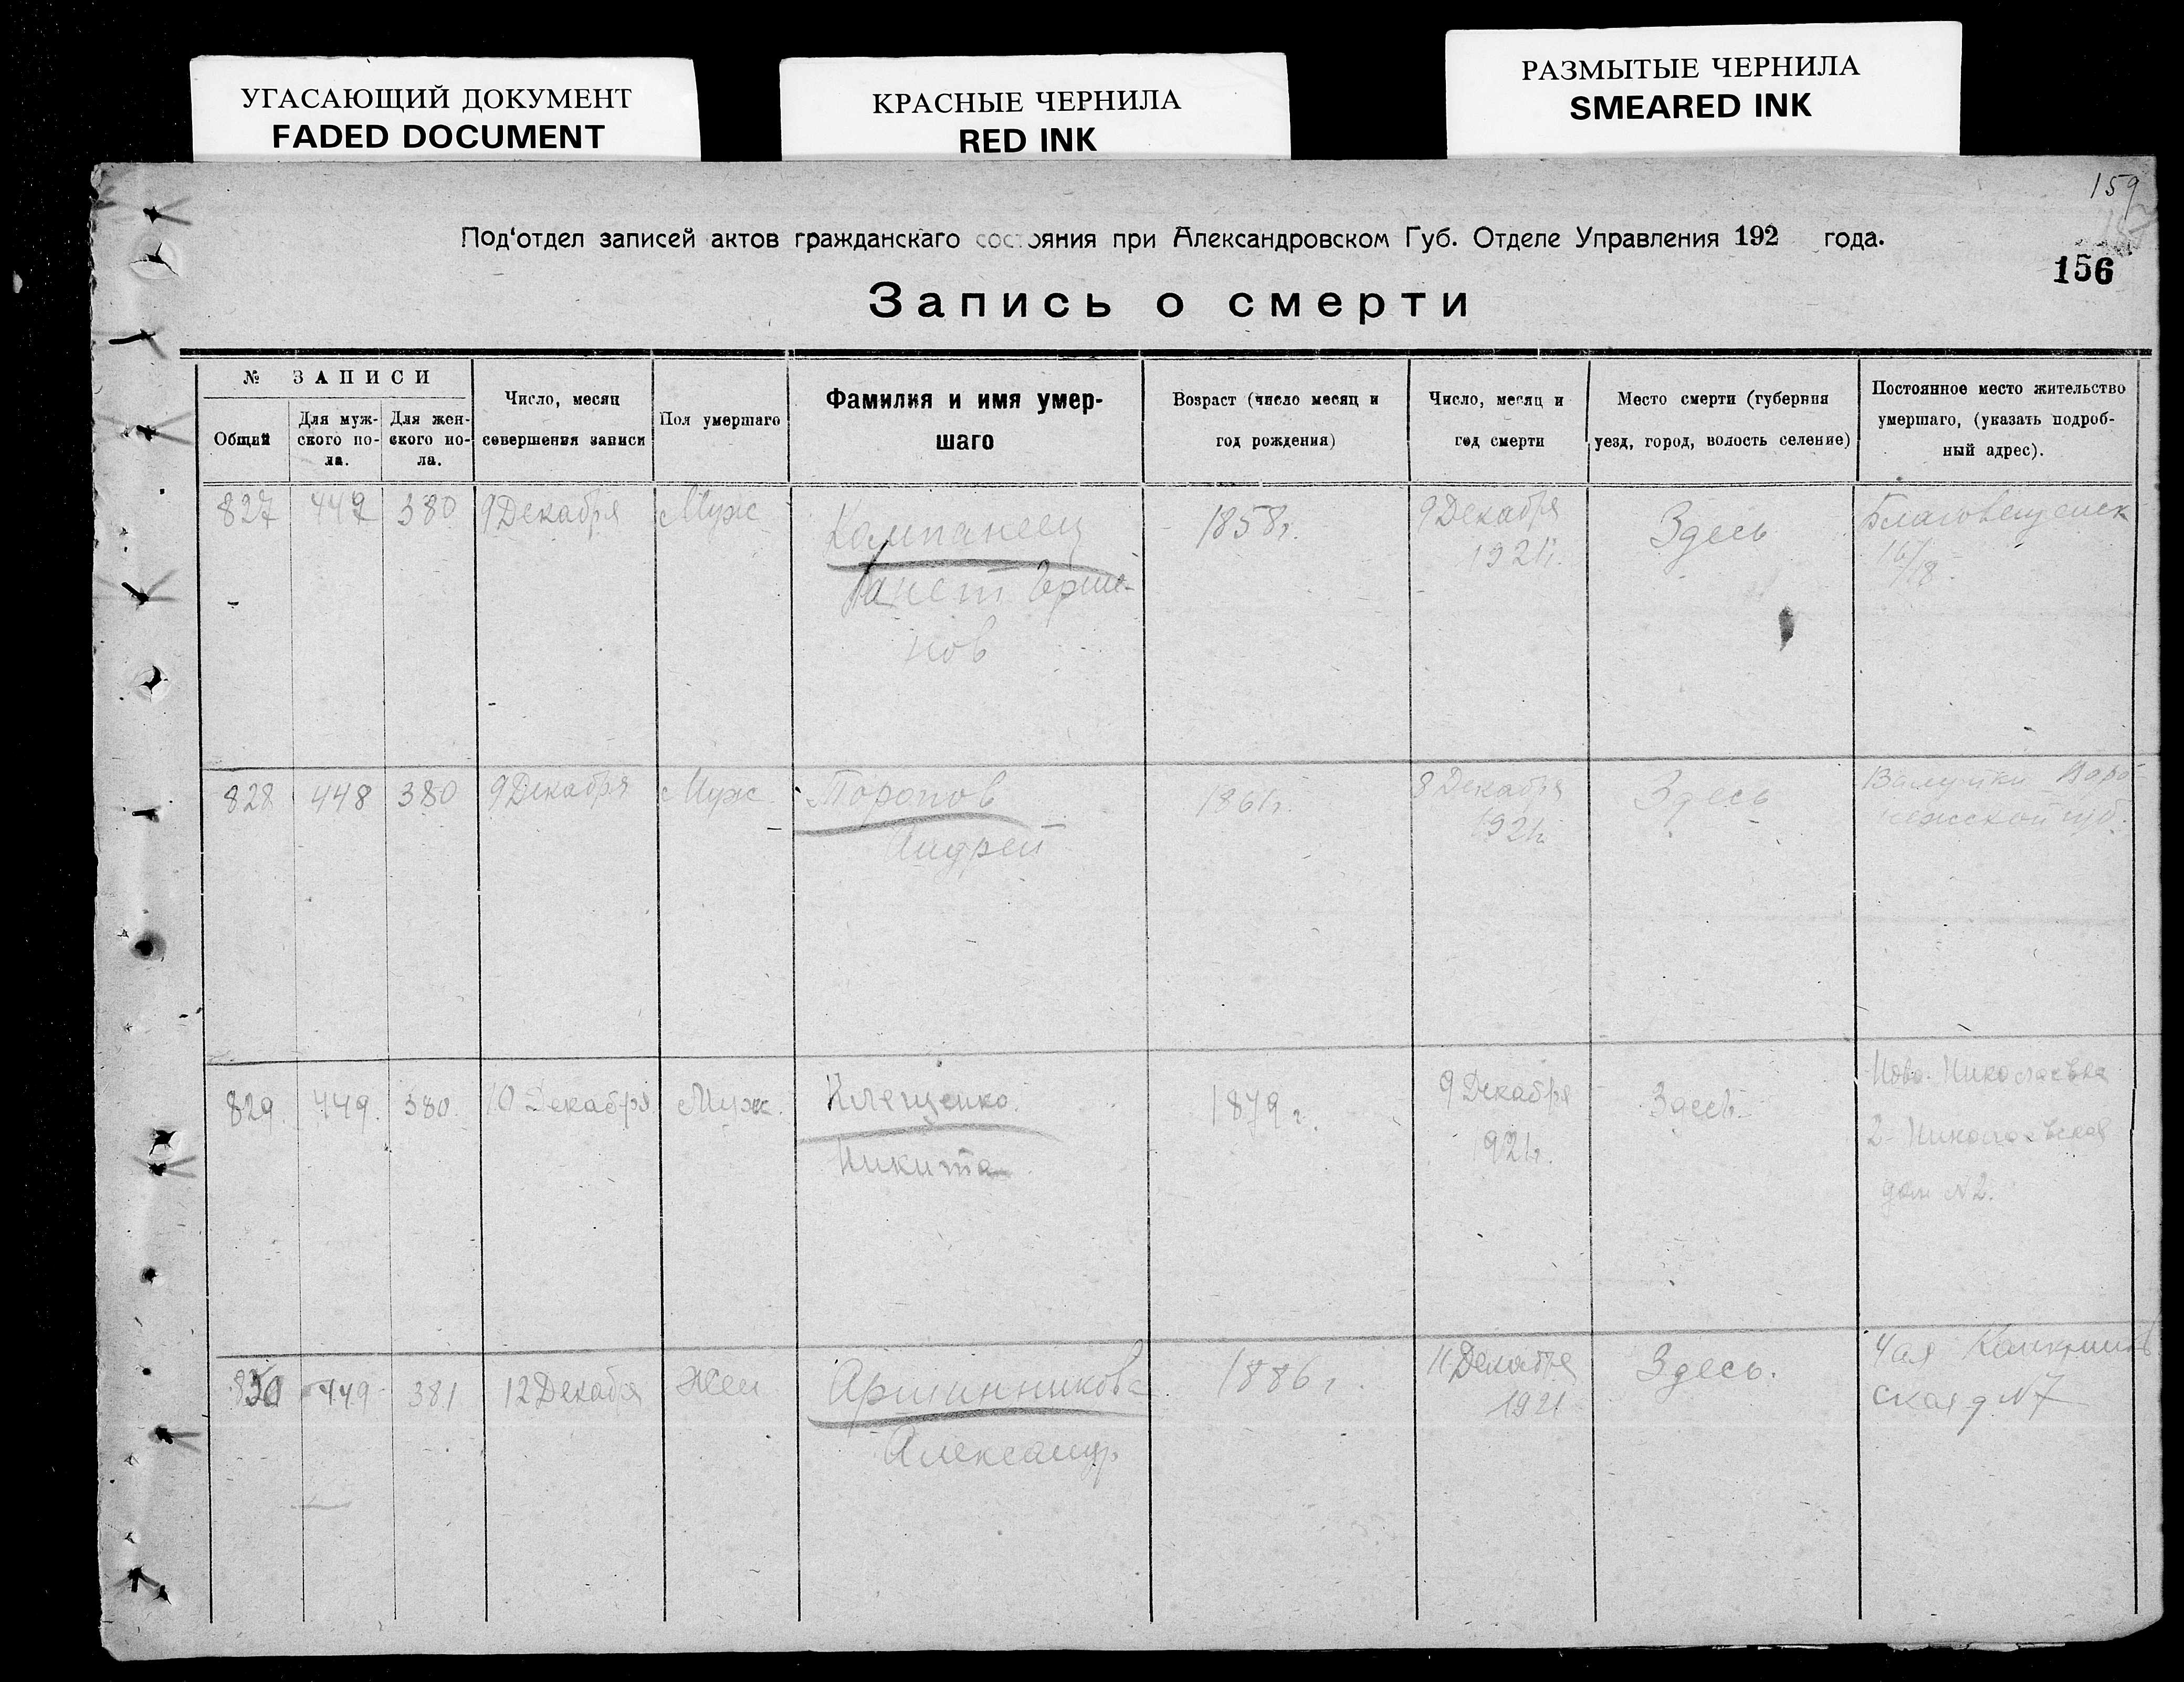 УГАСАЮЩИЙ ДОКУМЕНТ
FADED DOCUMENT
КРАСНЫЕ ЧЕРНИЛА
RED INK
РАЗМЫТЫЕ ЧЕРНИЛА
SMEARED INK
159
Под'отдел записей актов гражданскаго состояния при Александровском Губ. Отделе Управления 192 года.
156
Запись о смерти
№ ЗАПИСИ
Общий
Для муж-
ского по-
ла.
Для жен-
ского по-
ла.
Число, месяц
совершения записи
Пол умершаго
Фамилия и имя умер-
шаго
Возраст (число месяц и
год рождения)
Число, месяц и
год смерти
Место смерти (губерния
уезд, город, волость селение)
Постоянное место жительство
умершаго, (указать подроб-
ный адрес).
827 447 380 9 Декабря Муж
Компанеец
1858г.
9 Декабря
1921г.
Здесь
Благовещенск
16/18
828 448 380 9 Декабря Муж
Торопов
Андрей
1861г.
8 Декабря
1921г.
Здесь
Валуйки Воро-
нежской губ.
829. 449. 380. 10 Декабря Муж.
Клещенко.
Никита
1879 г.
9 Декабря
1921г.
Здесь.
Ново-Николаевка
2-Николаевская
дом №2.
830 449 381 12 Декабря Жен
Аршинникова
Александр.
1886 г.
11 Декабря
1921
Здесь.
4ая
ская д №7